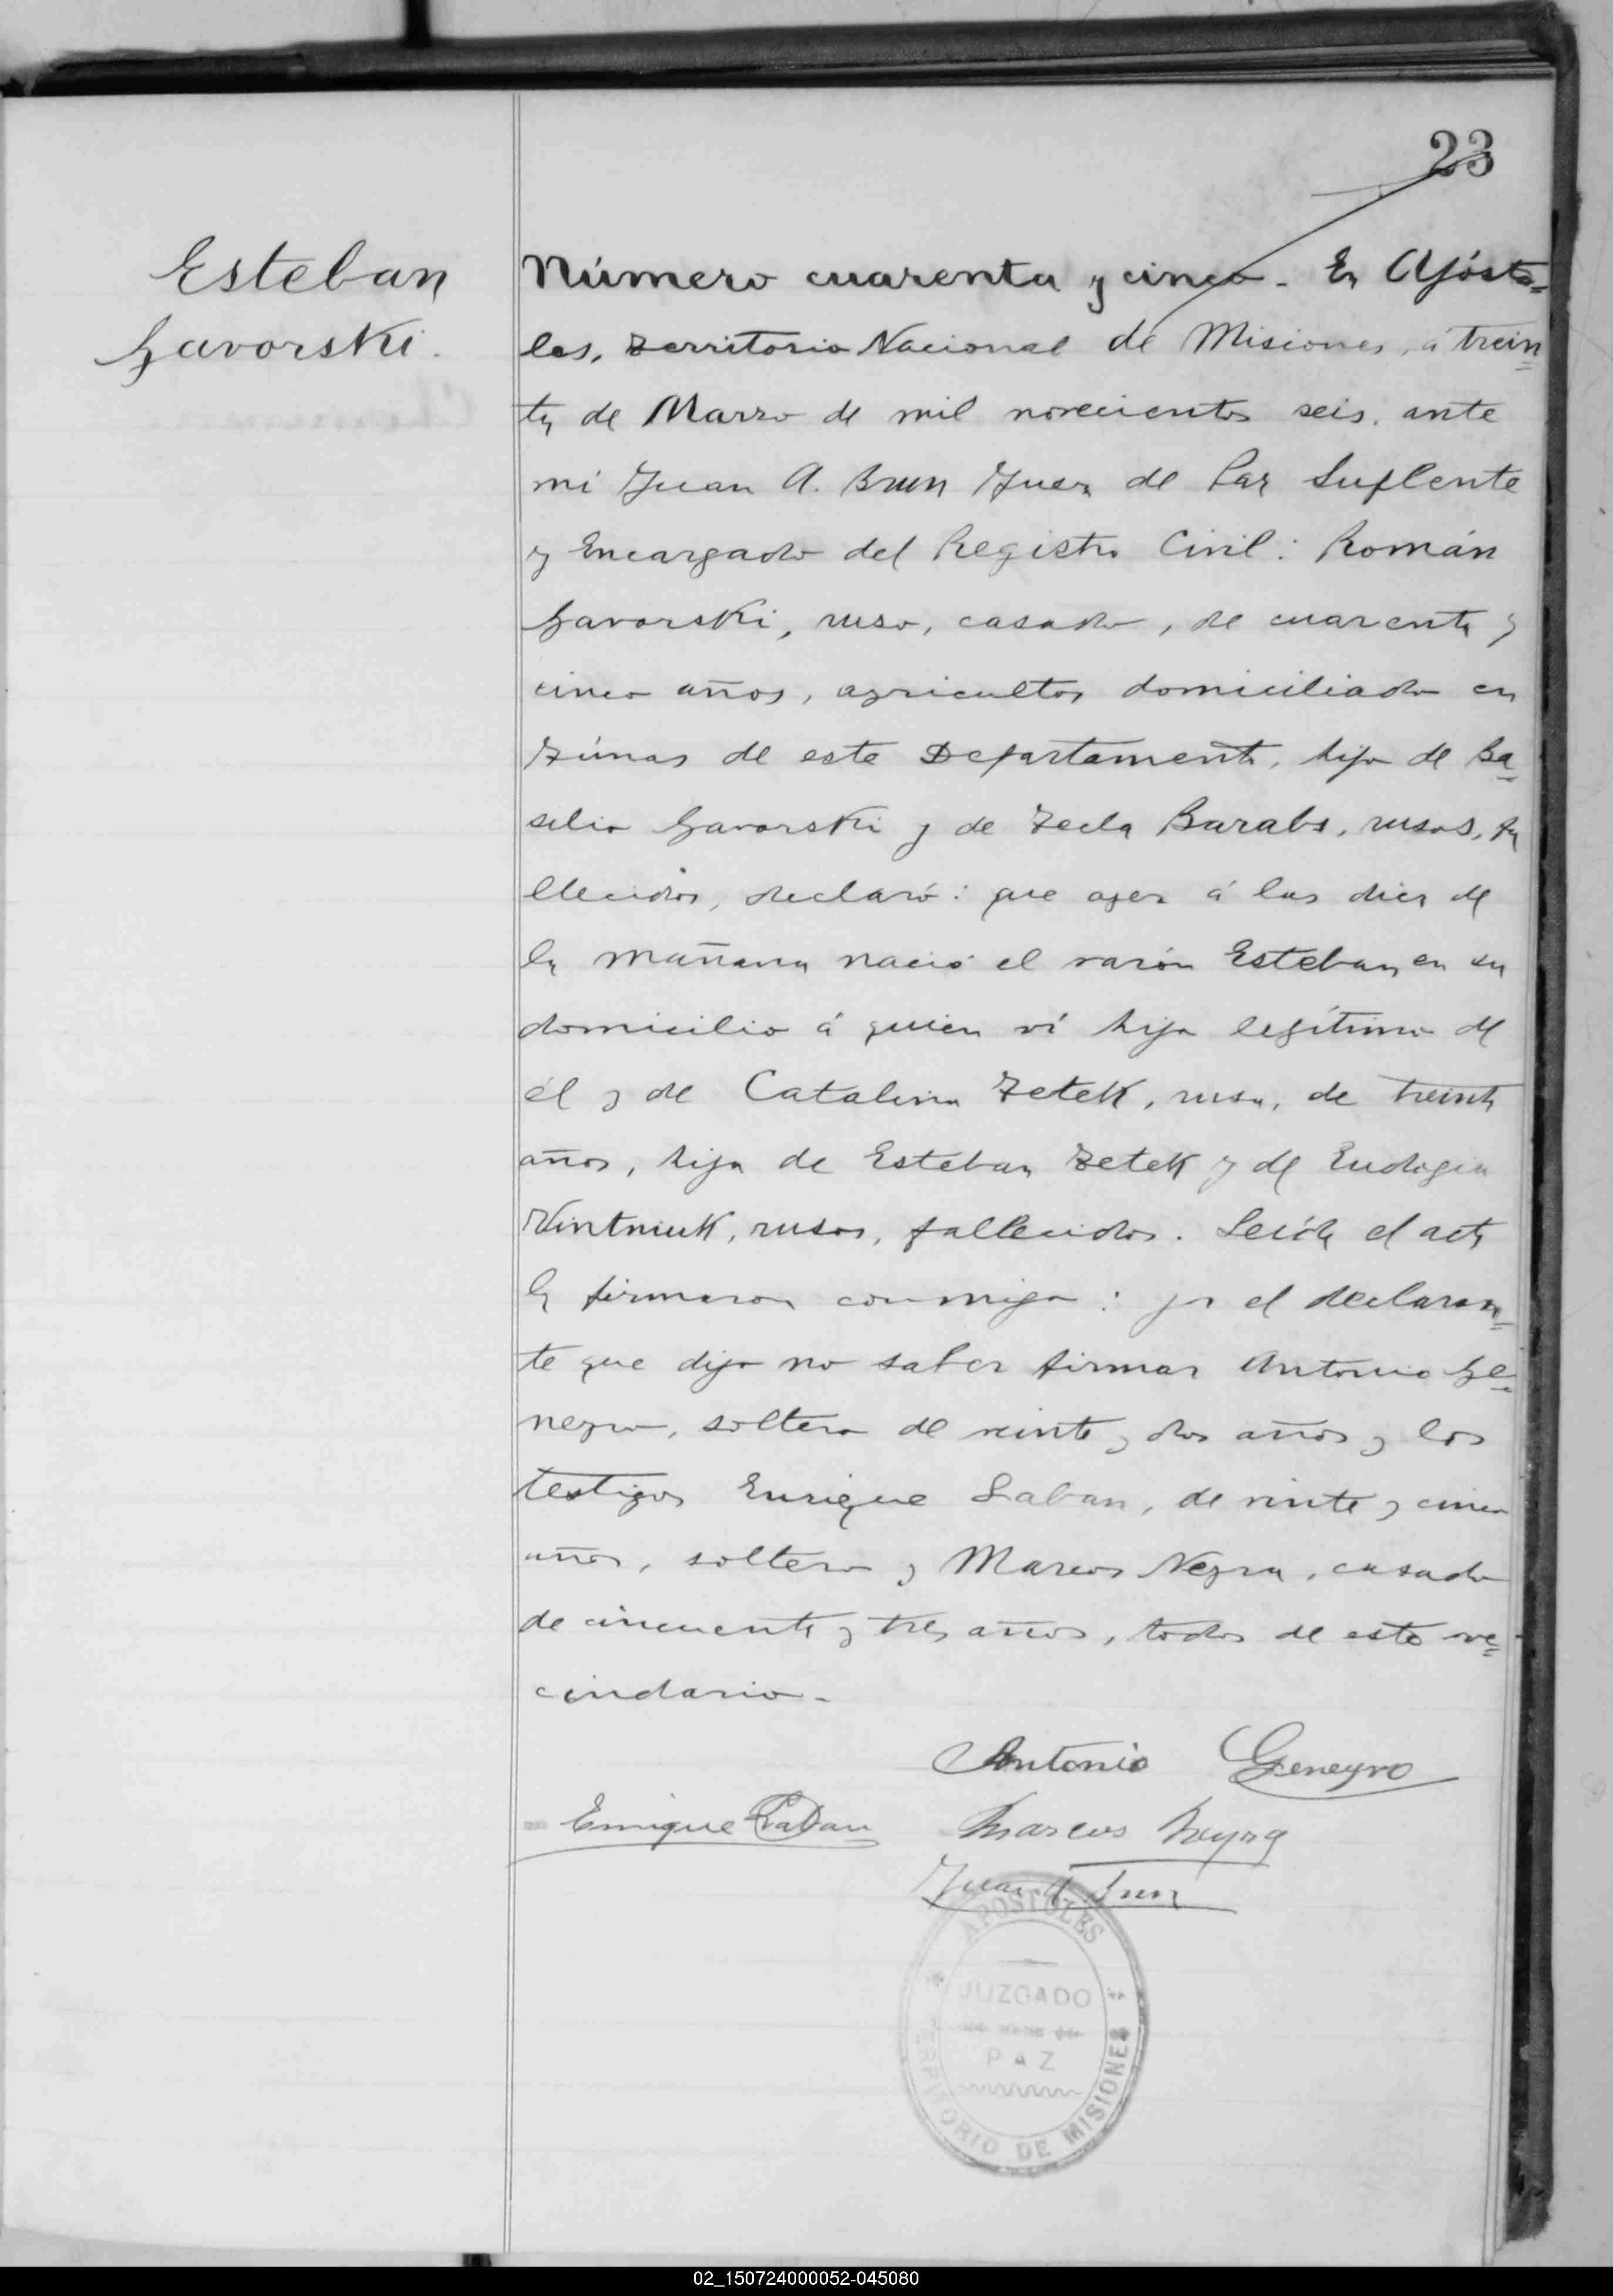 23
Esteban
Gavorski.
Número cuarenta y cinco. En Aposto=
les, Territorio Nacional de Misiones, á trein=
ta de Marzo de mil novecientos seis, ante
mi Juan A. Brun Juez de Paz Suplente
y Encargado del Registro Civil: Román
Gavorski, ruso, casado, de cuarenta y
cinco años, agricultor domiciliado en
de este Departamento, hijo de Ba=
silio Gavorski y de Tecla Barabs, rusos, fa
llecidos, declaró: que ayer á las diez de
la mañana nació el varón Esteban en su
domicilio á quien ví hijo legítimo de
él y de Catalina Zetek, rusa, de treinta
años, hija de Esteban Zetek y de Eudogia
Vintniuk, rusos, fallecidos. Leida el acta
la firmaron conmigo: por el declaran=
te que dijo no saber firmar Antonio Ge=
negro, soltero de veinte y dos años y los
testigos Enrique Laban, de veinte y cinco
años, soltero y Marcos Negra, casado
de cincuenta y tres años, todos de este ve=
cindario.
Antonio Geneyro
Enrique Laban Marcos Neyra
Juan A. Brun
APOSTOLES
JUZGADO
PAZ
TERRITORIO DE MISIONES
02_150724000052-045080